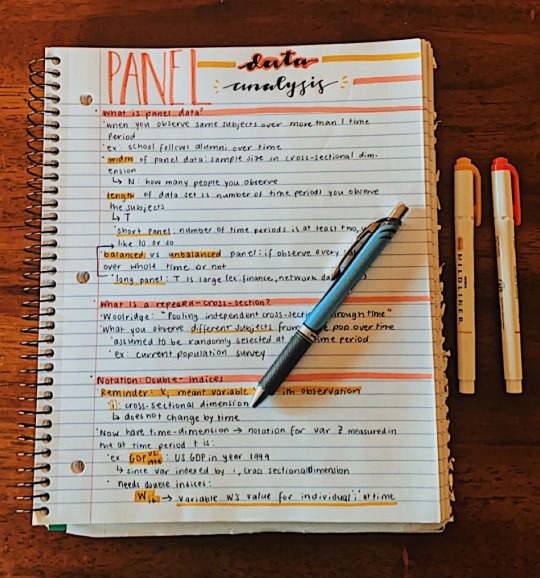 PANEL data
analysis
what is panel data?
when you observe same subjects over more than 1 time
period
ex: school follows alumni over time
width of panel data: sample size in cross-sectional dim-
ension
↳ N: how many people you observe
length of data set is number of time periods you observe
the subjects
↳ T
short panel: number of time periods is at least two,
like 10 or so
balanced vs unbalanced panel: if observe every
over whole time or not
long panel: T is large (ex: finance, network
What is a repeard-cross-section?
Woolridge: "Pooling independent cross- through time"
What you observe different subjects from pop over time
assumed to be randomly selected at time period
ex: current population survey
Notation: Double-indices
Reminder: Xi meant variable ith observation
i: cross-sectional dimension
↳ does not change by time
Now have time-dimension → notation for var Z measured in
the at time period t is:
ex: GDP US, 1999 : US GDP in year 1999
↳ since var indexed by i, cross sectional dimension
needs double indices:
Wit → variable W's value for individual 'i' at time
MILDLINER